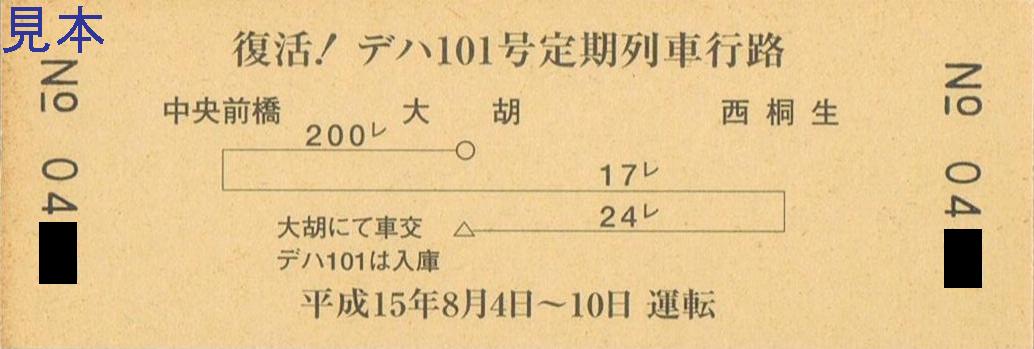 見本
復活！デハ101号定期列車行路
中央前橋 大胡 西桐生
200レ
17レ
24レ
大胡にて車交
デハ101は入庫
平成15年8月4日～10日 運転
No 04
No 04